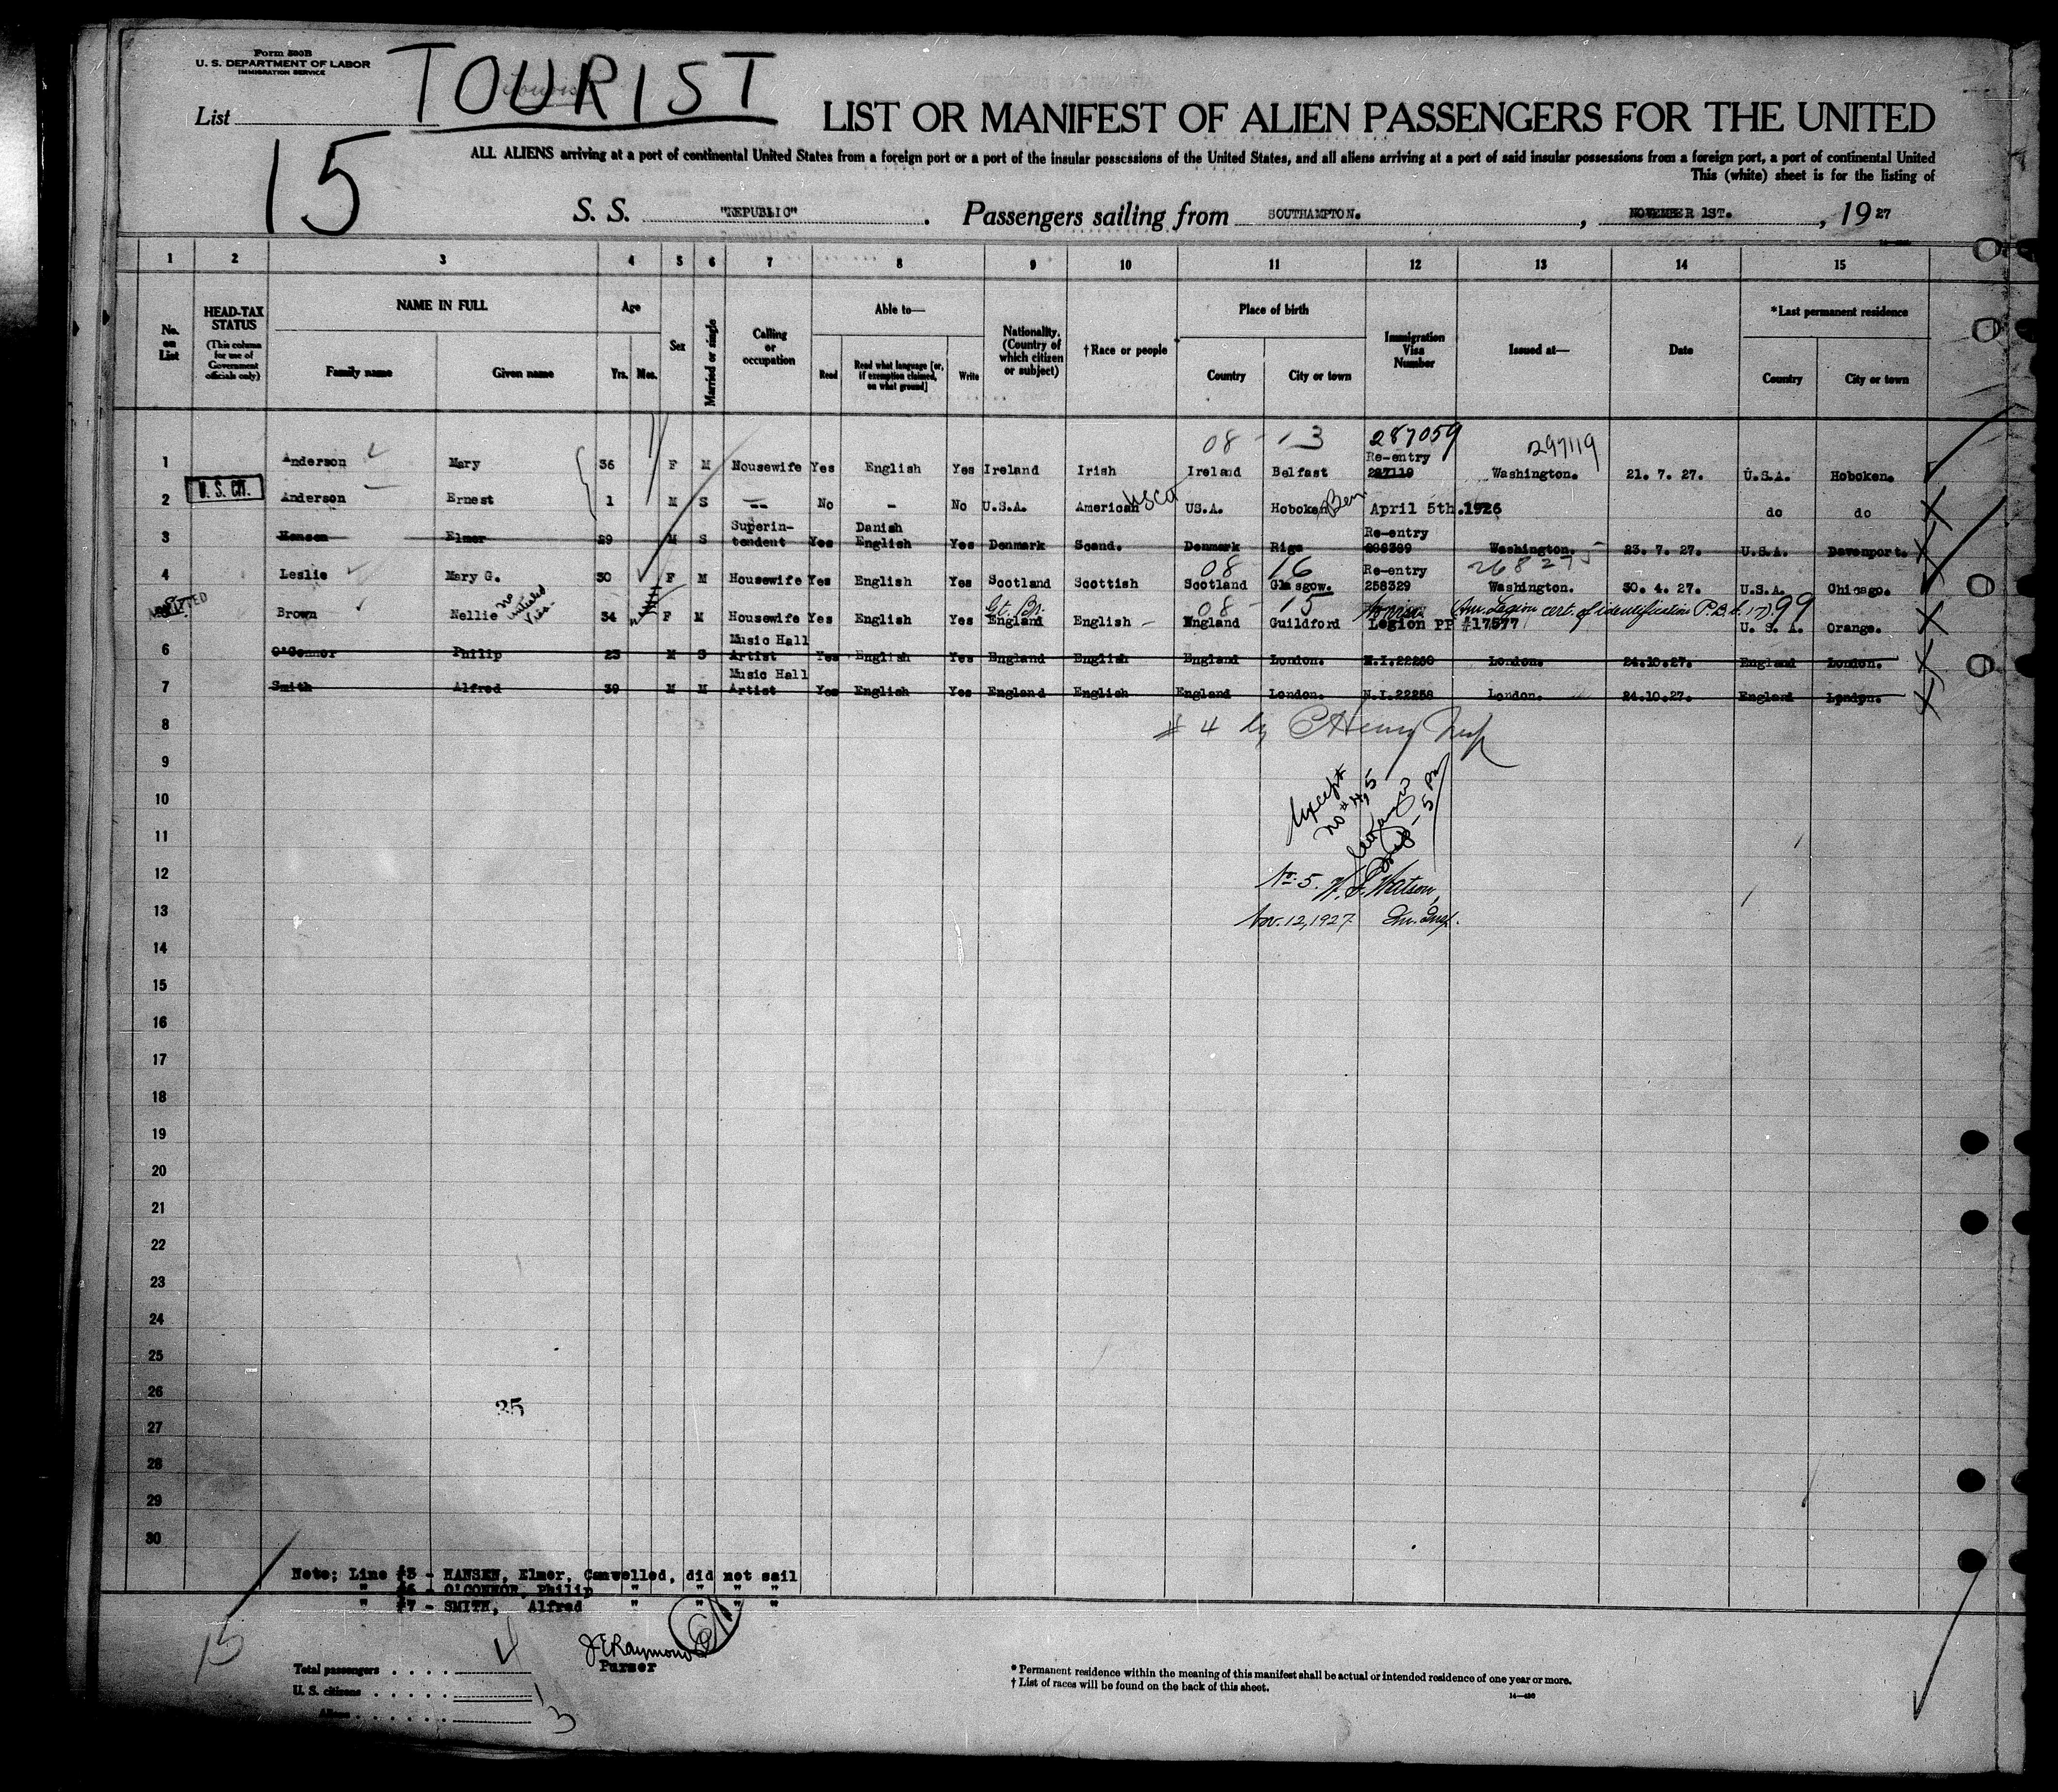 Form 500B
U. S. DEPARTMENT OF LABOR
IMMIGRATION SERVICE
TOURIST
List
15
LIST OR MANIFEST OF ALIEN PASSENGERS FOR THE UNITED
ALL ALIENS arriving at a port of continental United States from a foreign port or a port of the insular possessions of the United States, and all aliens arriving at a port of said insular possessions from a foreign port, a port of continental United
This (white) sheet is for the listing of
S. S. "REPUBLIC". Passengers sailing from SOUTHAMPTON. , NOVEMBER 1ST. , 19 27
1 2 3 4 5 6 7 8 9 10 11 12 13 14 15
No. on List
HEAD-TAX STATUS (This column for use of Government officials only)
NAME IN FULL Family name Given name
Age Yrs. Mos.
Sex
Married or single
Calling or occupation
Able to— Read Read what language [or, if exemption claimed, on what ground] Write
Nationality. (Country of which citizen or subject)
†Race or people
Place of birth Country City or town
Immigration Visa Number
Issued at—
Date
*Last permanent residence Country City or town
08 - 13 287059 297119
1 Anderson Mary 36 F M Housewife Yes English Yes Ireland Irish Ireland Belfast Re-entry Washington. 21. 7. 27. U.S.A. Hoboken.
2 U.S. CIT. Anderson Ernest 1 M S -- No - No U.S.A. American USC US.A. Hoboken April 5th.1926 do do
3 Hansen Elmer 29 M S Superin-tendent Yes Danish English Yes Denmark Scand. Denmark Riga Re-entry Washington. 23. 7. 27. U.S.A. Davenport.
08 - 16
4 Leslie Mary G. 30 F M Housewife Yes English Yes Scotland Scottish Scotland Glasgow. Re-entry 258329 Washington. 30. 4. 27. U.S.A. Chicago.
ADMITTED no Gt. Br. 08 - 15 Am. Legion cert. of identification 99
Brown Nellie 34 F M Housewife Yes English Yes England English England Guildford Legion PP #17577 U. S. A. Orange.
6 O'Connor Philip 23 M S Music Hall Artist Yes English Yes England English England London. N.I.22260 London. 24.10.27. England London.
7 Smith Alfred 39 M M Music Hall Artist Yes English Yes England English England London. N.I.22258 London. 24.10.27. England London.
8 # 4 by
9
10 Except no # 4, 5
11
12 No. 5. Watson,
13 Nov. 12, 1927 Im. Insp.
14
15
16
17
18
19
20
21
22
23
24
25
26
35
27
28
29
30
Note; Line #3 - HANSEN, Elmer, Canwelled, did not sail
" #6 - O'CONNOR, Philip " " " "
" #7 - SMITH, Alfred " " " "
15
J E Raymond
Purser
Total passengers 4
U. S. citizens 1
Aliens 3
* Permanent residence within the meaning of this manifest shall be actual or intended residence of one year or more.
† List of races will be found on the back of this sheet.